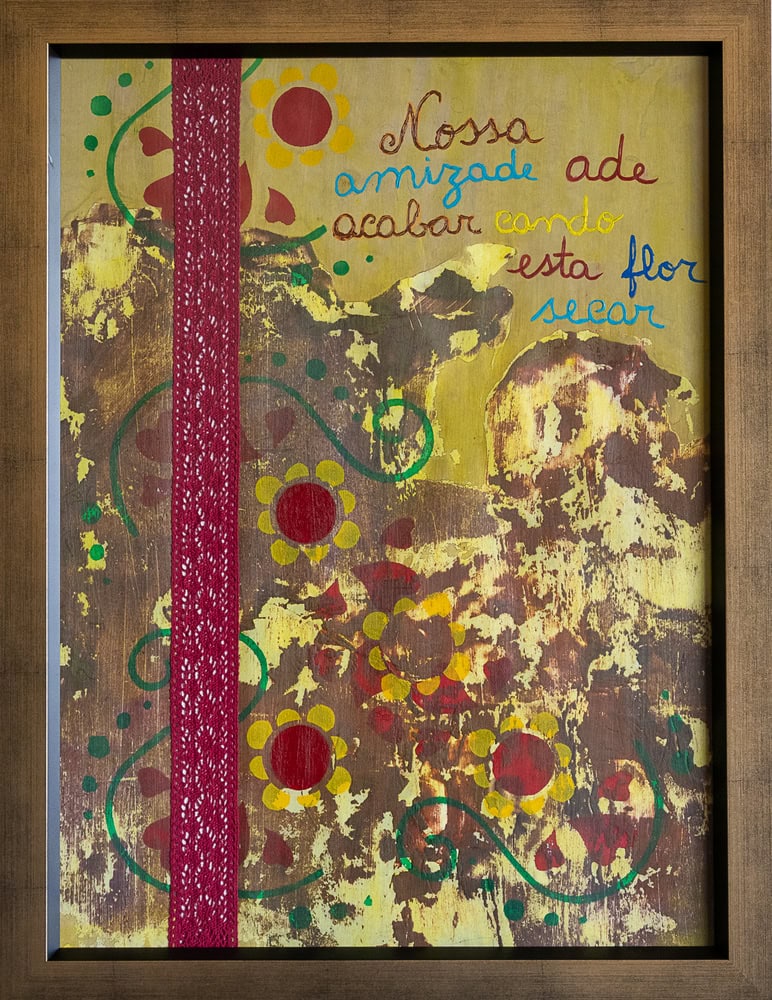 Nossa
amizade ade
acabar cando
esta flor
secar